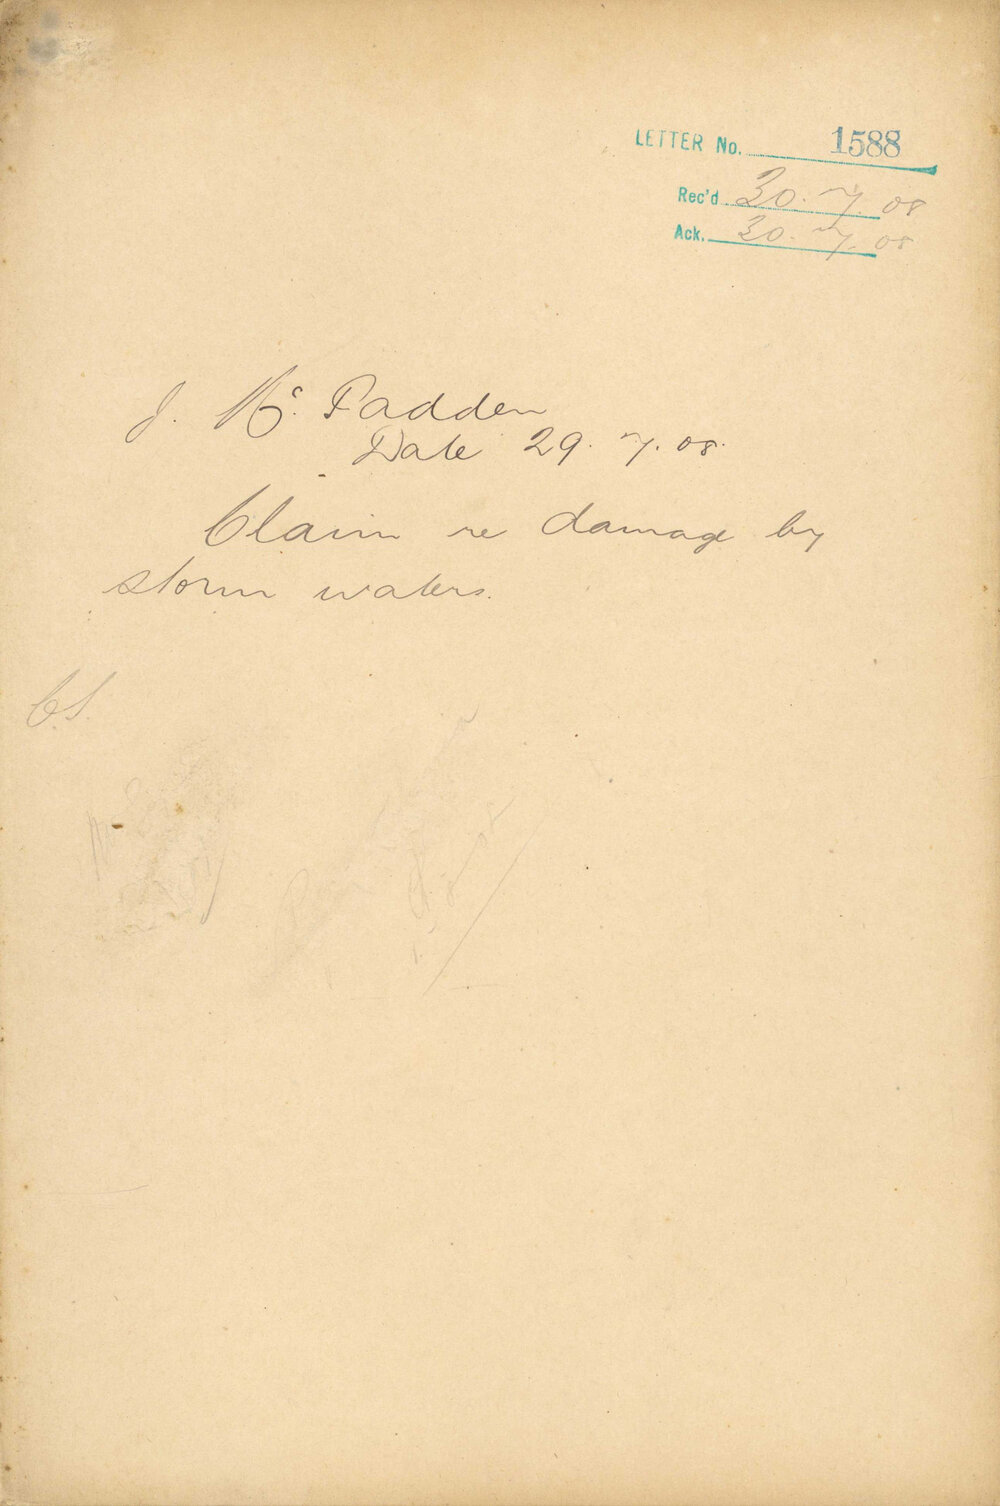 LETTER No. 1588
Rec'd 30. 7. 08
Ack. 30. 7. 08
J. Mc. Fadden
Date 29. 7. 08.
Claim re damage by
storm waters.